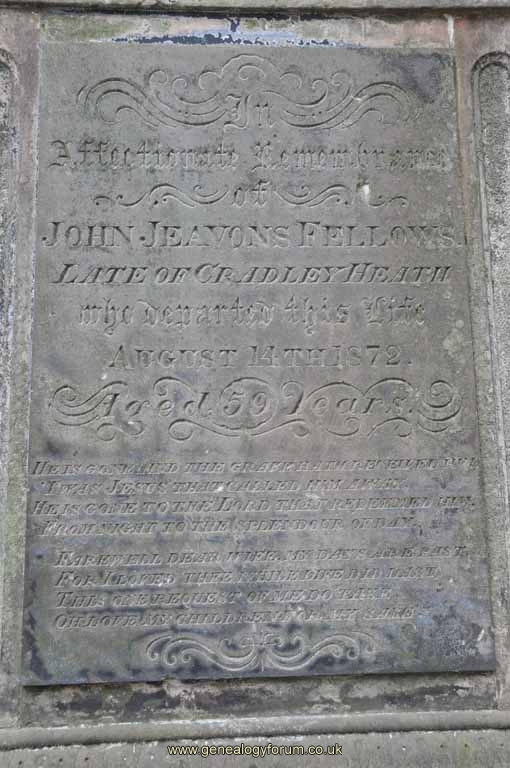 In
Affectionate Remembrance
of
JOHN JEAVONS FELLOWS.
LATE OF CRADLEY HEATH
who departed this Life
AUGUST 14TH 1872.
Aged 59 Years.
HE IS GONE AND THE GRAVE HATH RECEIVED HIM
'TWAS JESUS THAT CALLED HIM AWAY
HE IS GONE TO THE LORD THAT REDEEMED HIM,
FROM NIGHT TO THE SPLENDOUR OF DAY.
FAREWELL DEAR WIFE MY DAYS ARE PAST,
FOR I LOVED THEE WHILE LIFE DID LAST,
THIS ONE REQUEST OF ME DO TAKE
OH LOVE MY CHILDREN FOR MY SAKE
www.genealogyforum.co.uk